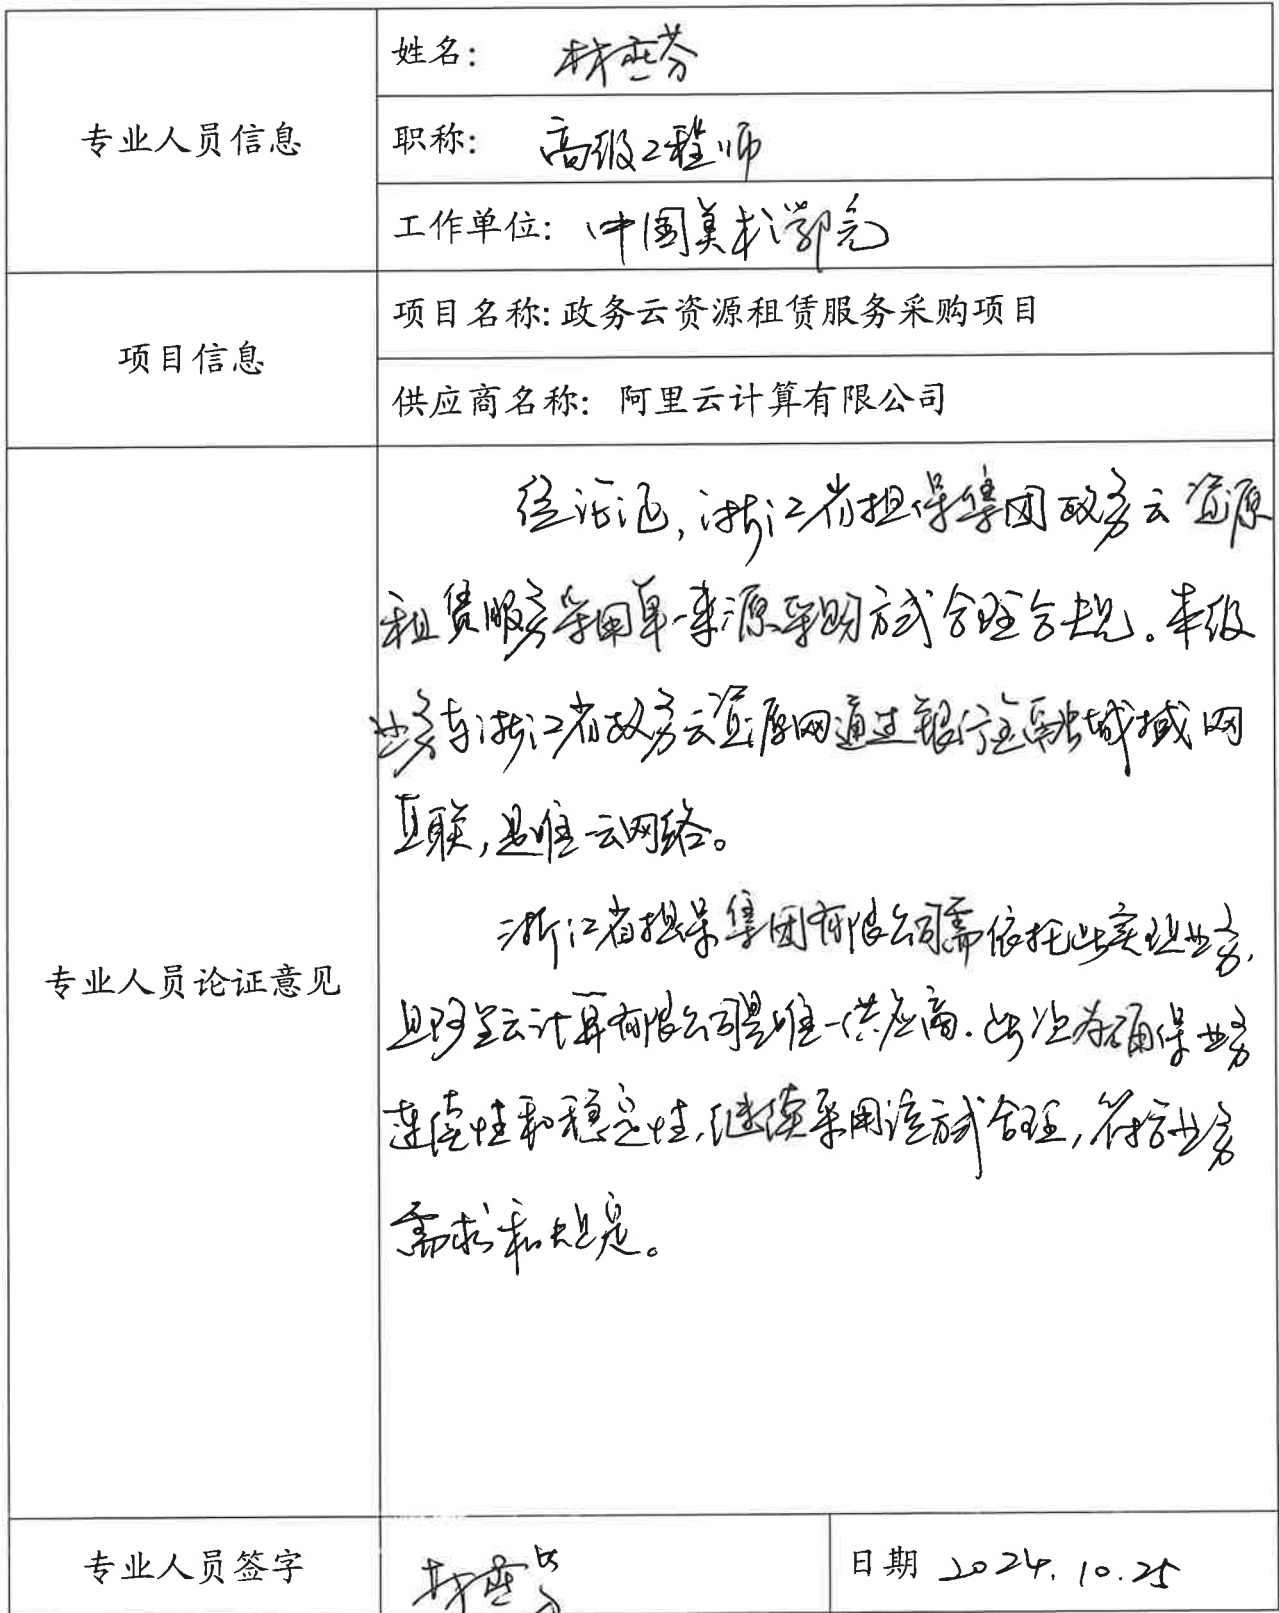 专业人员信息
姓名：林 芬
职称：高级工程师
工作单位：中国美术学院
项目信息
项目名称：政务云资源租赁服务采购项目
供应商名称：阿里云计算有限公司
专业人员论证意见
经论证，浙江省担保集团政务云资源
租赁服务采用单一来源采购方式合理合规。本级
业务与浙江省政务云资源网通过银行金融城域网
互联，是唯一云网络。
浙江省担保集团有限公司需依托此实现业务，
且阿里云计算有限公司是唯一供应商。此次为确保业务
连续性和稳定性，继续采用该方式合理，符合业务
需求和规定。
专业人员签字
林 芬
日期 2024.10.25